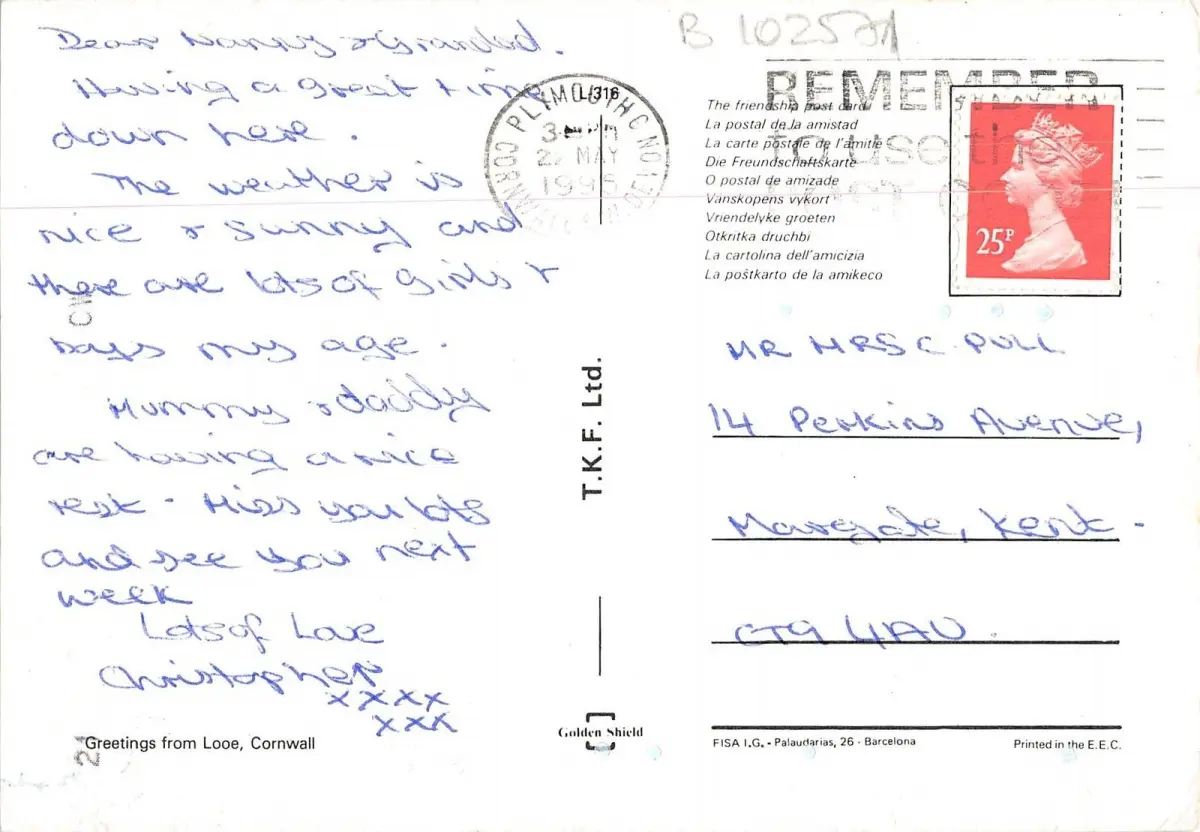 B 102521
Dear Nanny & Grandad.
Having a great time
down here.
The weather is
nice & sunny and
there are lots of girls &
boys my age.
Mummy & daddy
are having a nice
rest - Miss you lots
and see you next
week
Lots of Love
Christopher
xxxx
xxx
Greetings from Looe, Cornwall
PLYMOUTH
CORNWALL
DEVON
MAY
L/316
T.K.F. Ltd.
Golden Shield
REMEMBER
to use the
The friendship post card
La postal de la amistad
La carte postale de l'amitie
Die Freundschaftskarte
O postal de amizade
Vanskopens vykort
Vriendelyke groeten
Otkritka druchbi
La cartolina dell'amicizia
La poŝtkarto de la amikeco
25P
MR MRS C. PULL
14 Perkins Avenue,
Margate, Kent -
CT9 4AU.
FISA I.G. - Palaudarias, 26 - Barcelona
Printed in the E.E.C.